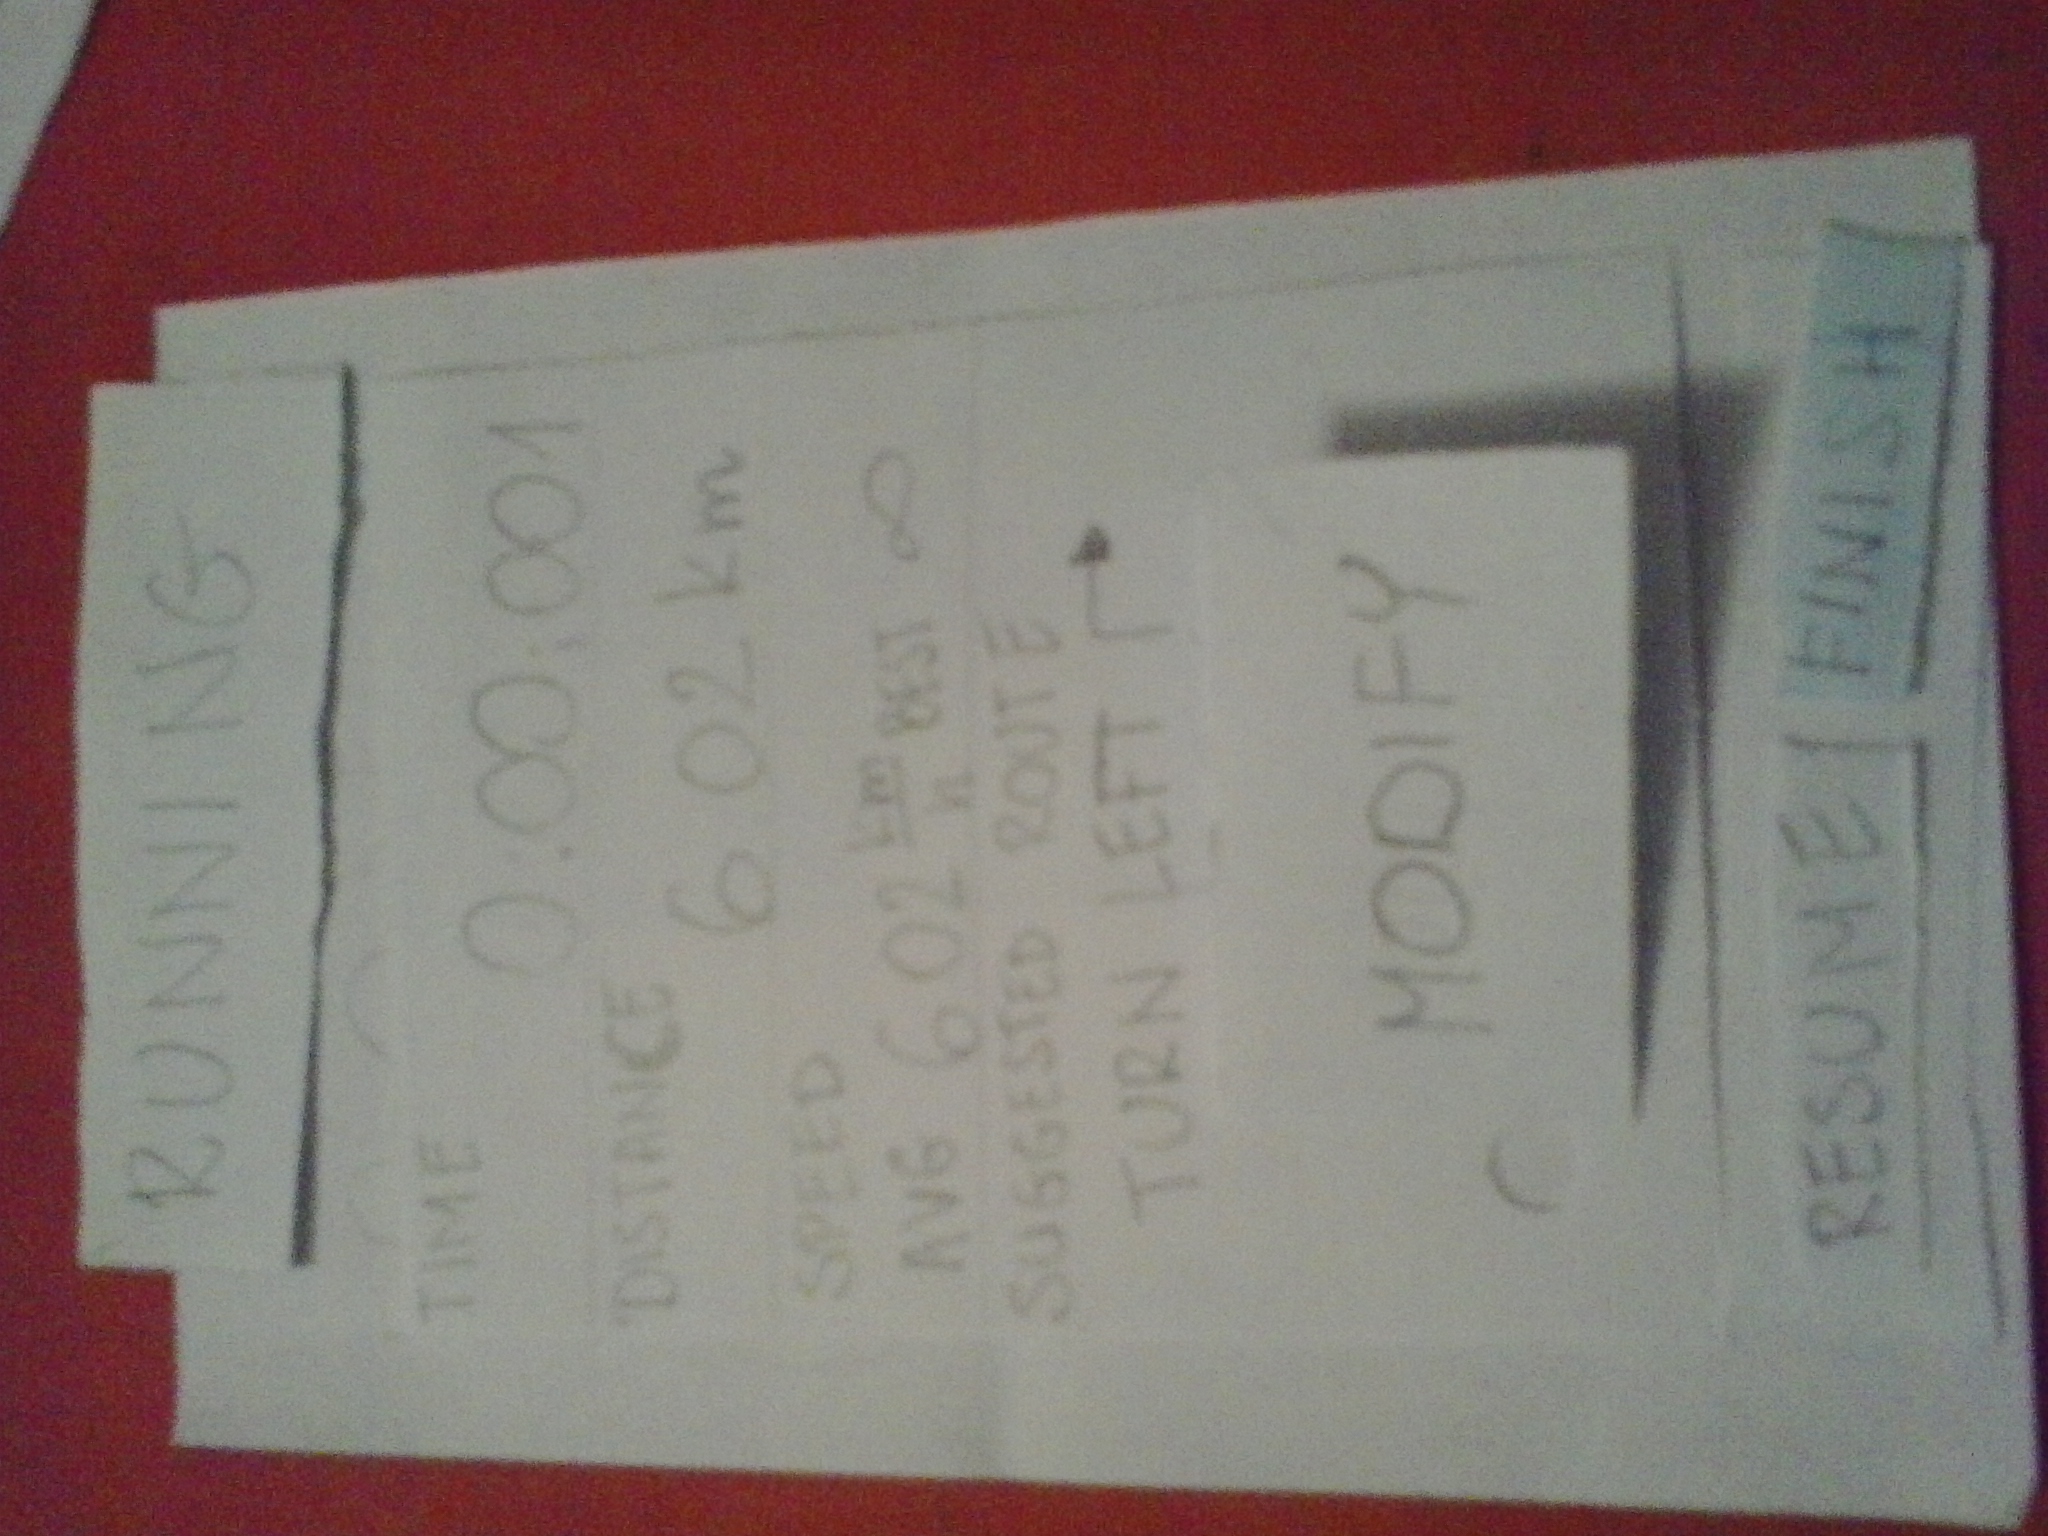 RUNNING
TIME
0:00:001
DISTANCE
6 02 km
SPEED
AVG 6 02 km/h BEST ∞
SUGGESTED ROUTE
TURN LEFT
MODIFY
RESUME
FINISH